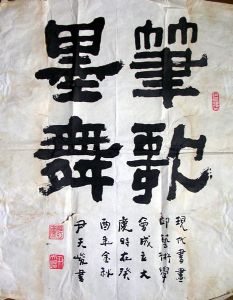 筆歌
墨舞
現代書畫
印藝術學
會成立大
慶時在癸
酉年金秋
尹天書